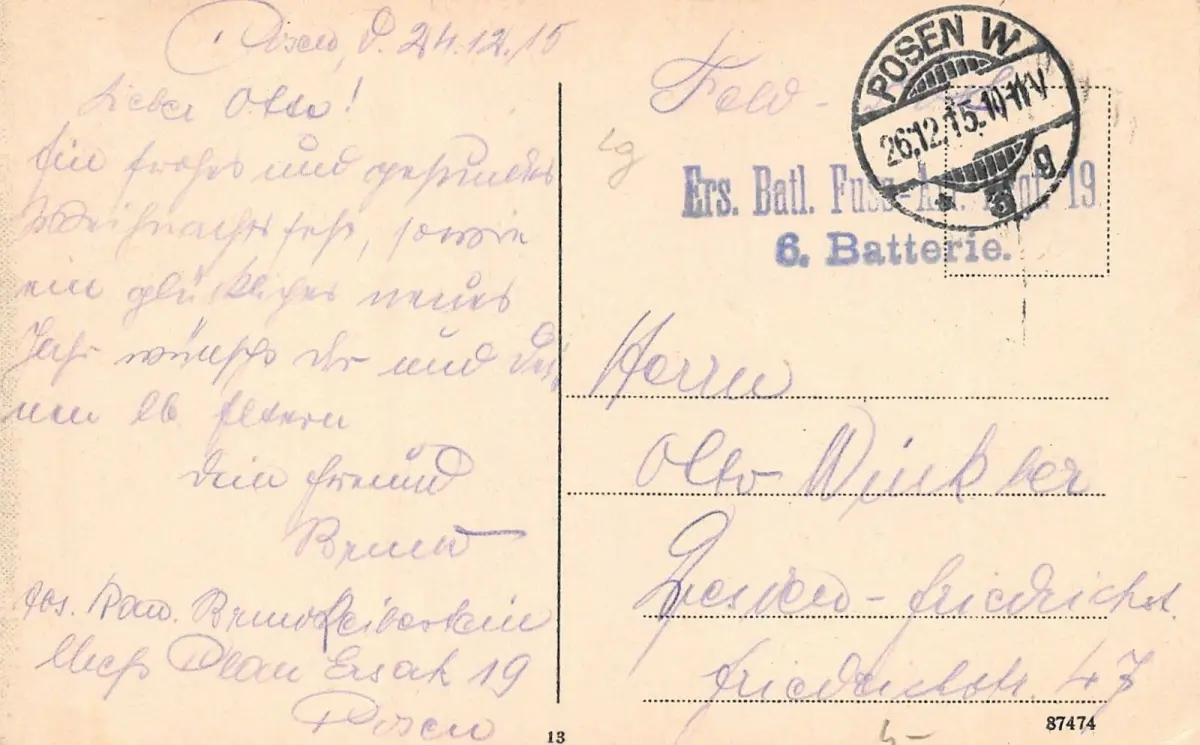 Posen, d. 24.12.15
Lieber Otto!
Ein frohes und gesundes
Weihnachtsfest, sowie
ein glückliches neues
Jahr wünscht dir und dei-
nen lb Eltern
Dein Freund
Bruno
Kan. Bruno
Ersatz 19
Posen
13
Feld-
POSEN W
26.12.15.10-11V
* 3 g
Ers. Batl. Fuss-Art. Rgt. 19
6. Batterie.
Herrn
Otto Winkler
Dresden-Friedrichst.
Friedrichstr. 47
87474